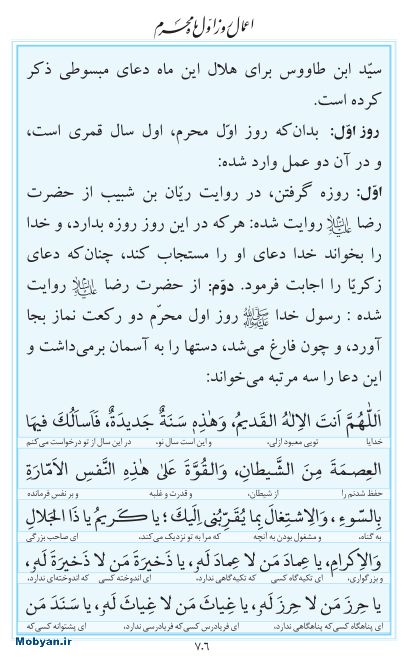 اعمال روز اول ماه محرم
سیّد ابن طاووس برای هلال این ماه دعای مبسوطی ذکر
کرده است.
روز اوّل: بدان‌که روز اوّل محرم، اول سال قمری است،
و در آن دو عمل وارد شده:
اوّل: روزه گرفتن، در روایت ریّان بن شبیب از حضرت
رضا علیه‌السلام روایت شده: هرکه در این روز روزه بدارد، و خدا
را بخواند خدا دعای او را مستجاب کند، چنان‌که دعای
زکریّا را اجابت فرمود. دوّم: از حضرت رضا علیه‌السلام روایت
شده : رسول خدا ﷺ روز اول محرّم دو رکعت نماز بجا
آورد، و چون فارغ می‌شد، دستها را به آسمان برمی‌داشت و
این دعا را سه مرتبه می‌خواند:
اَللّٰهُمَّ اَنتَ الاِلٰهُ القَدیمُ، وَهٰذِهِ سَنَةٌ جَدیدَةٌ، فَاَسأَلُکَ فیهَا
خدایا تویی معبود ازلی، و این است سال نو، در این سال از تو درخواست می‌کنم
العِصمَةَ مِنَ الشَّیطانِ، وَالقُوَّةَ عَلیٰ هٰذِهِ النَّفسِ الاَمّارَةِ
حفظ شدنم را از شیطان، و قدرت و غلبه و بر نفس فرمانده
بِالسّوءِ، وَالاِشتِغالَ بِما یُقَرِّبُنی اِلَیکَ؛ یا کَریمُ یا ذَا الجَلالِ
به گناه، و مشغول بودن به آنچه که مرا به تو نزدیک می‌کند، ای صاحب بزرگی
وَالاِکرامِ، یا عِمادَ مَن لا عِمادَ لَهُ، یا ذَخیرَةَ مَن لا ذَخیرَةَ لَهُ،
و بزرگواری، ای تکیه‌گاه کسی که تکیه‌گاهی ندارد، ای اندوخته کسی که اندوخته‌ای ندارد،
یا حِرزَ مَن لا حِرزَ لَهُ، یا غِیاثَ مَن لا غِیاثَ لَهُ، یا سَنَدَ مَن
ای پناهگاه کسی که پناهگاهی ندارد، ای فریادرس کسی که فریادرسی ندارد، ای پشتوانه کسی که
۷۰۶
Mobyan.ir